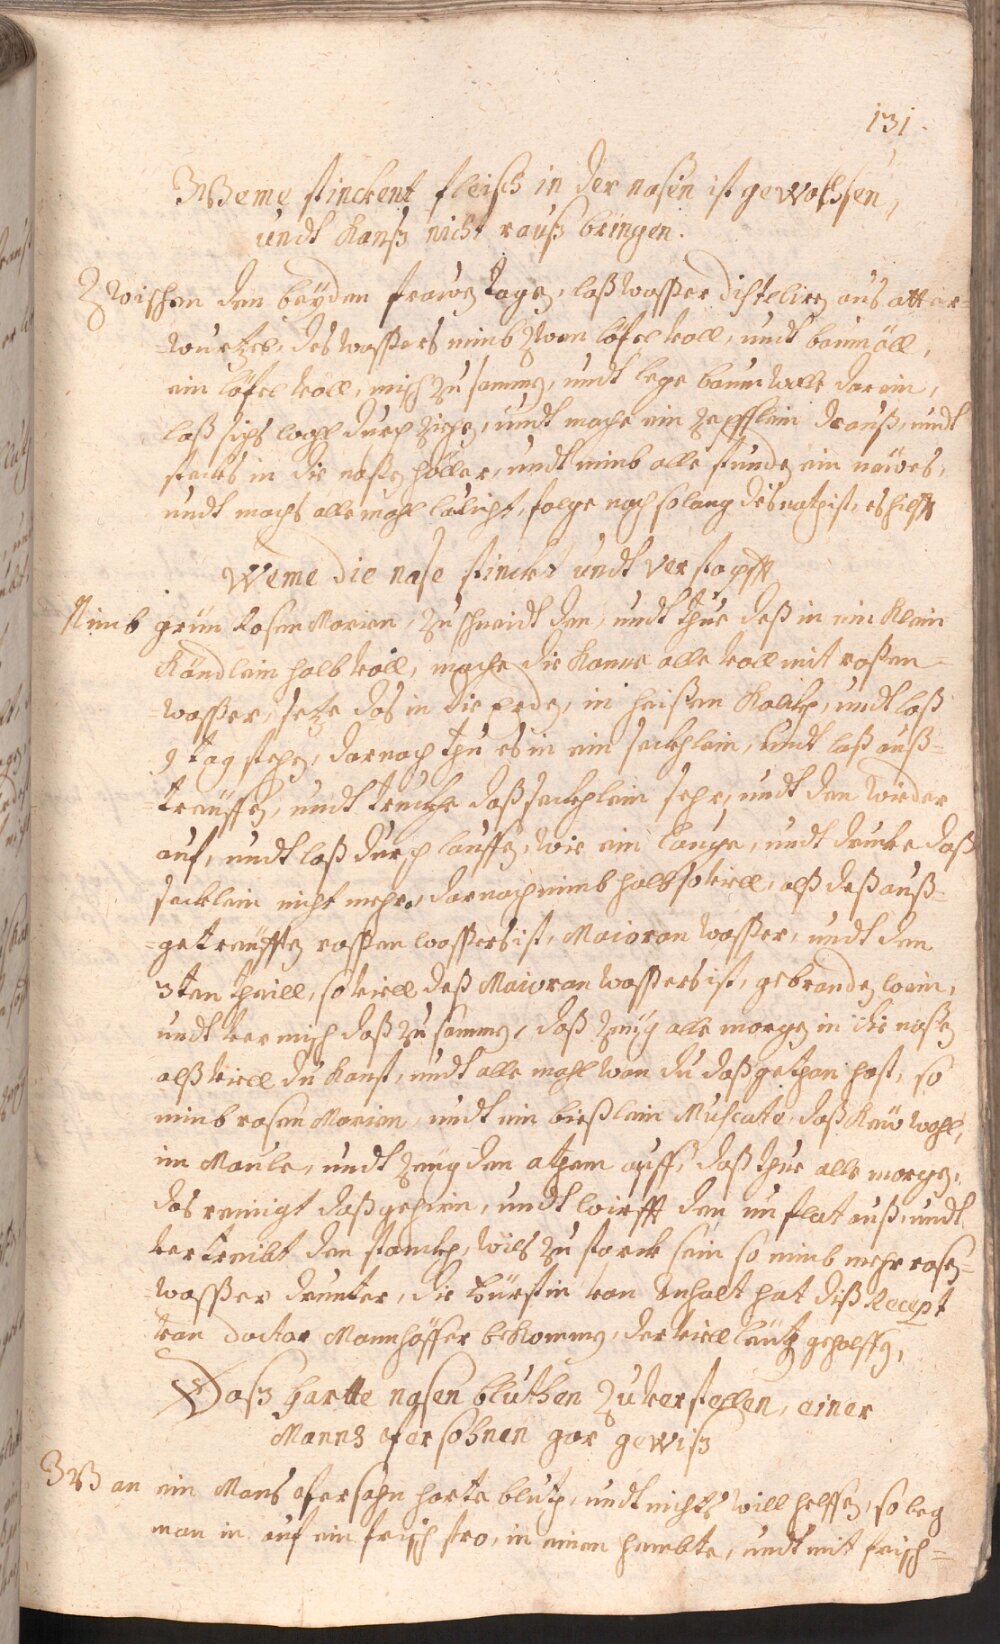 131.
Weme stinckent fleisch in der nasen ist gewachsen,
undt kanß nicht rauß bringen.
Zwischen den beÿden frawen tagen, laß wasser disteliren aus atter=
=wurtzel, des wassers nimb zwen löfel voll, undt baumöll,
ein löfel voll, misch zu sammen, undt lege baumwolle darein,
laß sichs wohl durch ziehen, undt mache ein zepfflein drauß, undt
stecks in die naßen höller, undt nimb alle stunden ein neüwes,
undt machs alle mahl laulicht, folge nach so lang des noth ist, es hilfft
Weme die nase stinckt undt verstopfft
Nimb grün Rosen Marien, zu schneidt den, undt thue deß in ein klein
kändlein halb voll, mache die kanne alle voll mit roßen=
=wasser, setze das in die erden, in heißen kalch, undt laß
9 tag stehen, darnach thu es in ein seckhlein, undt laß auß=
=treüffen, undt truckhe daß seckhlein sehr, undt den wieder
auf, undt laß durch lauffen, wie ein lauge, undt drucke daß
secklein nicht mehr, darnach nimb halb so viell, alß deß auß=
=getreüfften rossen wassers ist, Maioran wasser, undt den
3ten theill, so viell deß Maioran wassers ist, gebranden wein,
undt vermisch daß zu sammen, daß zeüg alle morgen in die naßen
alß viell du kanst, undt alle mahl wan du daß gethan hast, so
nimb rosen Marien, undt ein bießlein Muscate, daß keüw wohl,
im Maule, undt zeüg den athem auff, daß thue alle morgen,
das reinigt daß gehirn, undt wirfft den unflat auß, undt
vertreibt den stanckh, wils zu starck sein so nimb mehr rosen=
=wasser drunter, die Fürstin von Anhalt hat diß Recept
von doctor Mannhöffer bekommen, der viell leütz geholffen,
Daß harte nasen bluthen zu verstellen, einer
Manns persohnen gar gewiß
Wan ein Mans persohn harte bluth, undt nichts will helffen, so leg
man in auf ein frisch stro, in einem hembte, undt mit frisch=